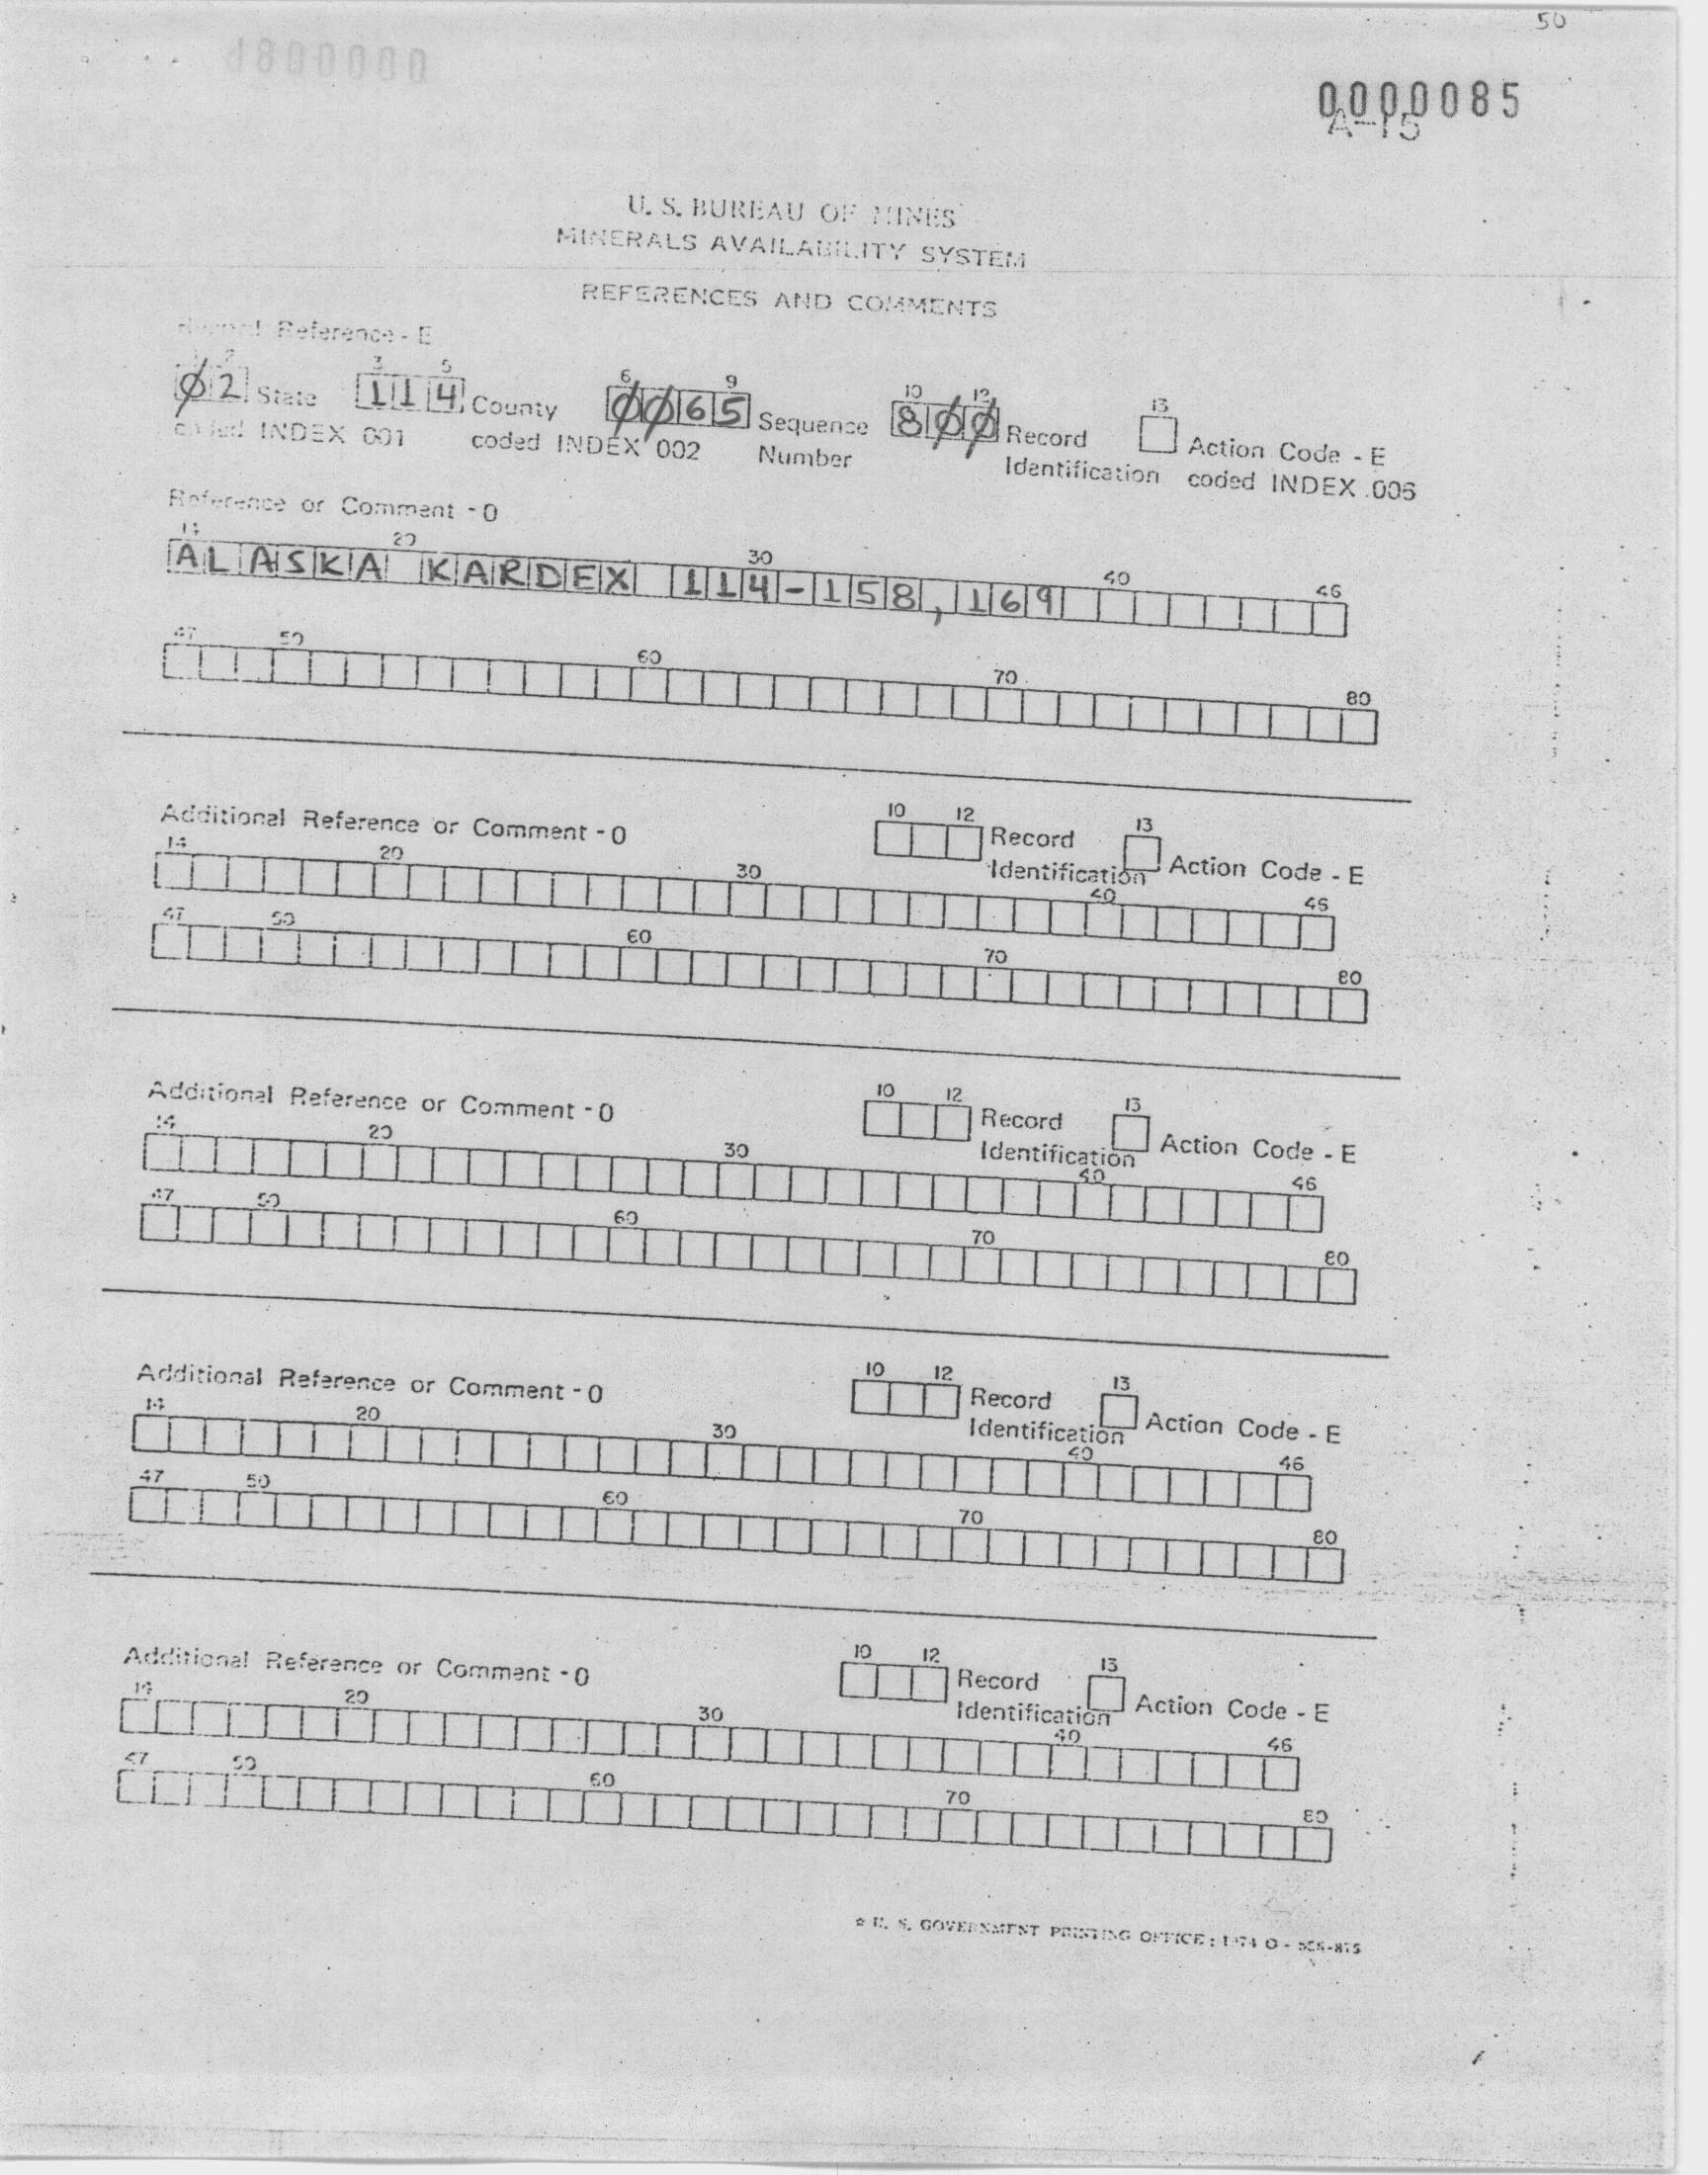 50
0000085
A-15
U. S. BUREAU OF MINES
MINERALS AVAILABILITY SYSTEM
REFERENCES AND COMMENTS
Reference - E
2 3 5 6 9 10 12 13
02 State 114 County 0065 Sequence 800 Record Action Code - E
coded INDEX 001 coded INDEX 002 Number Identification coded INDEX 006
Reference or Comment - O
14 20 30 40 46
ALASKA KARDEX 114-158,169
47 50 60 70 80
Additional Reference or Comment - O 10 12 Record 13
Identification Action Code - E
14 20 30 40 46
47 50 60 70 80
Additional Reference or Comment - O 10 12 Record 13
Identification Action Code - E
14 20 30 40 46
47 50 60 70 80
Additional Reference or Comment - O 10 12 Record 13
Identification Action Code - E
14 20 30 40 46
47 50 60 70 80
Additional Reference or Comment - O 10 12 Record 13
Identification Action Code - E
14 20 30 40 46
47 50 60 70 80
☆ U. S. GOVERNMENT PRINTING OFFICE : 1974 O -